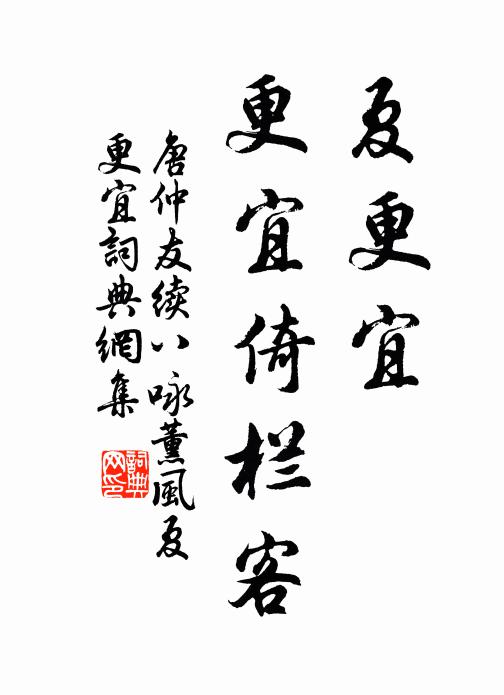 夏更宜
更宜倚栏客
唐仲友续八咏薰風夏
更宜詞典網集
詞典网印